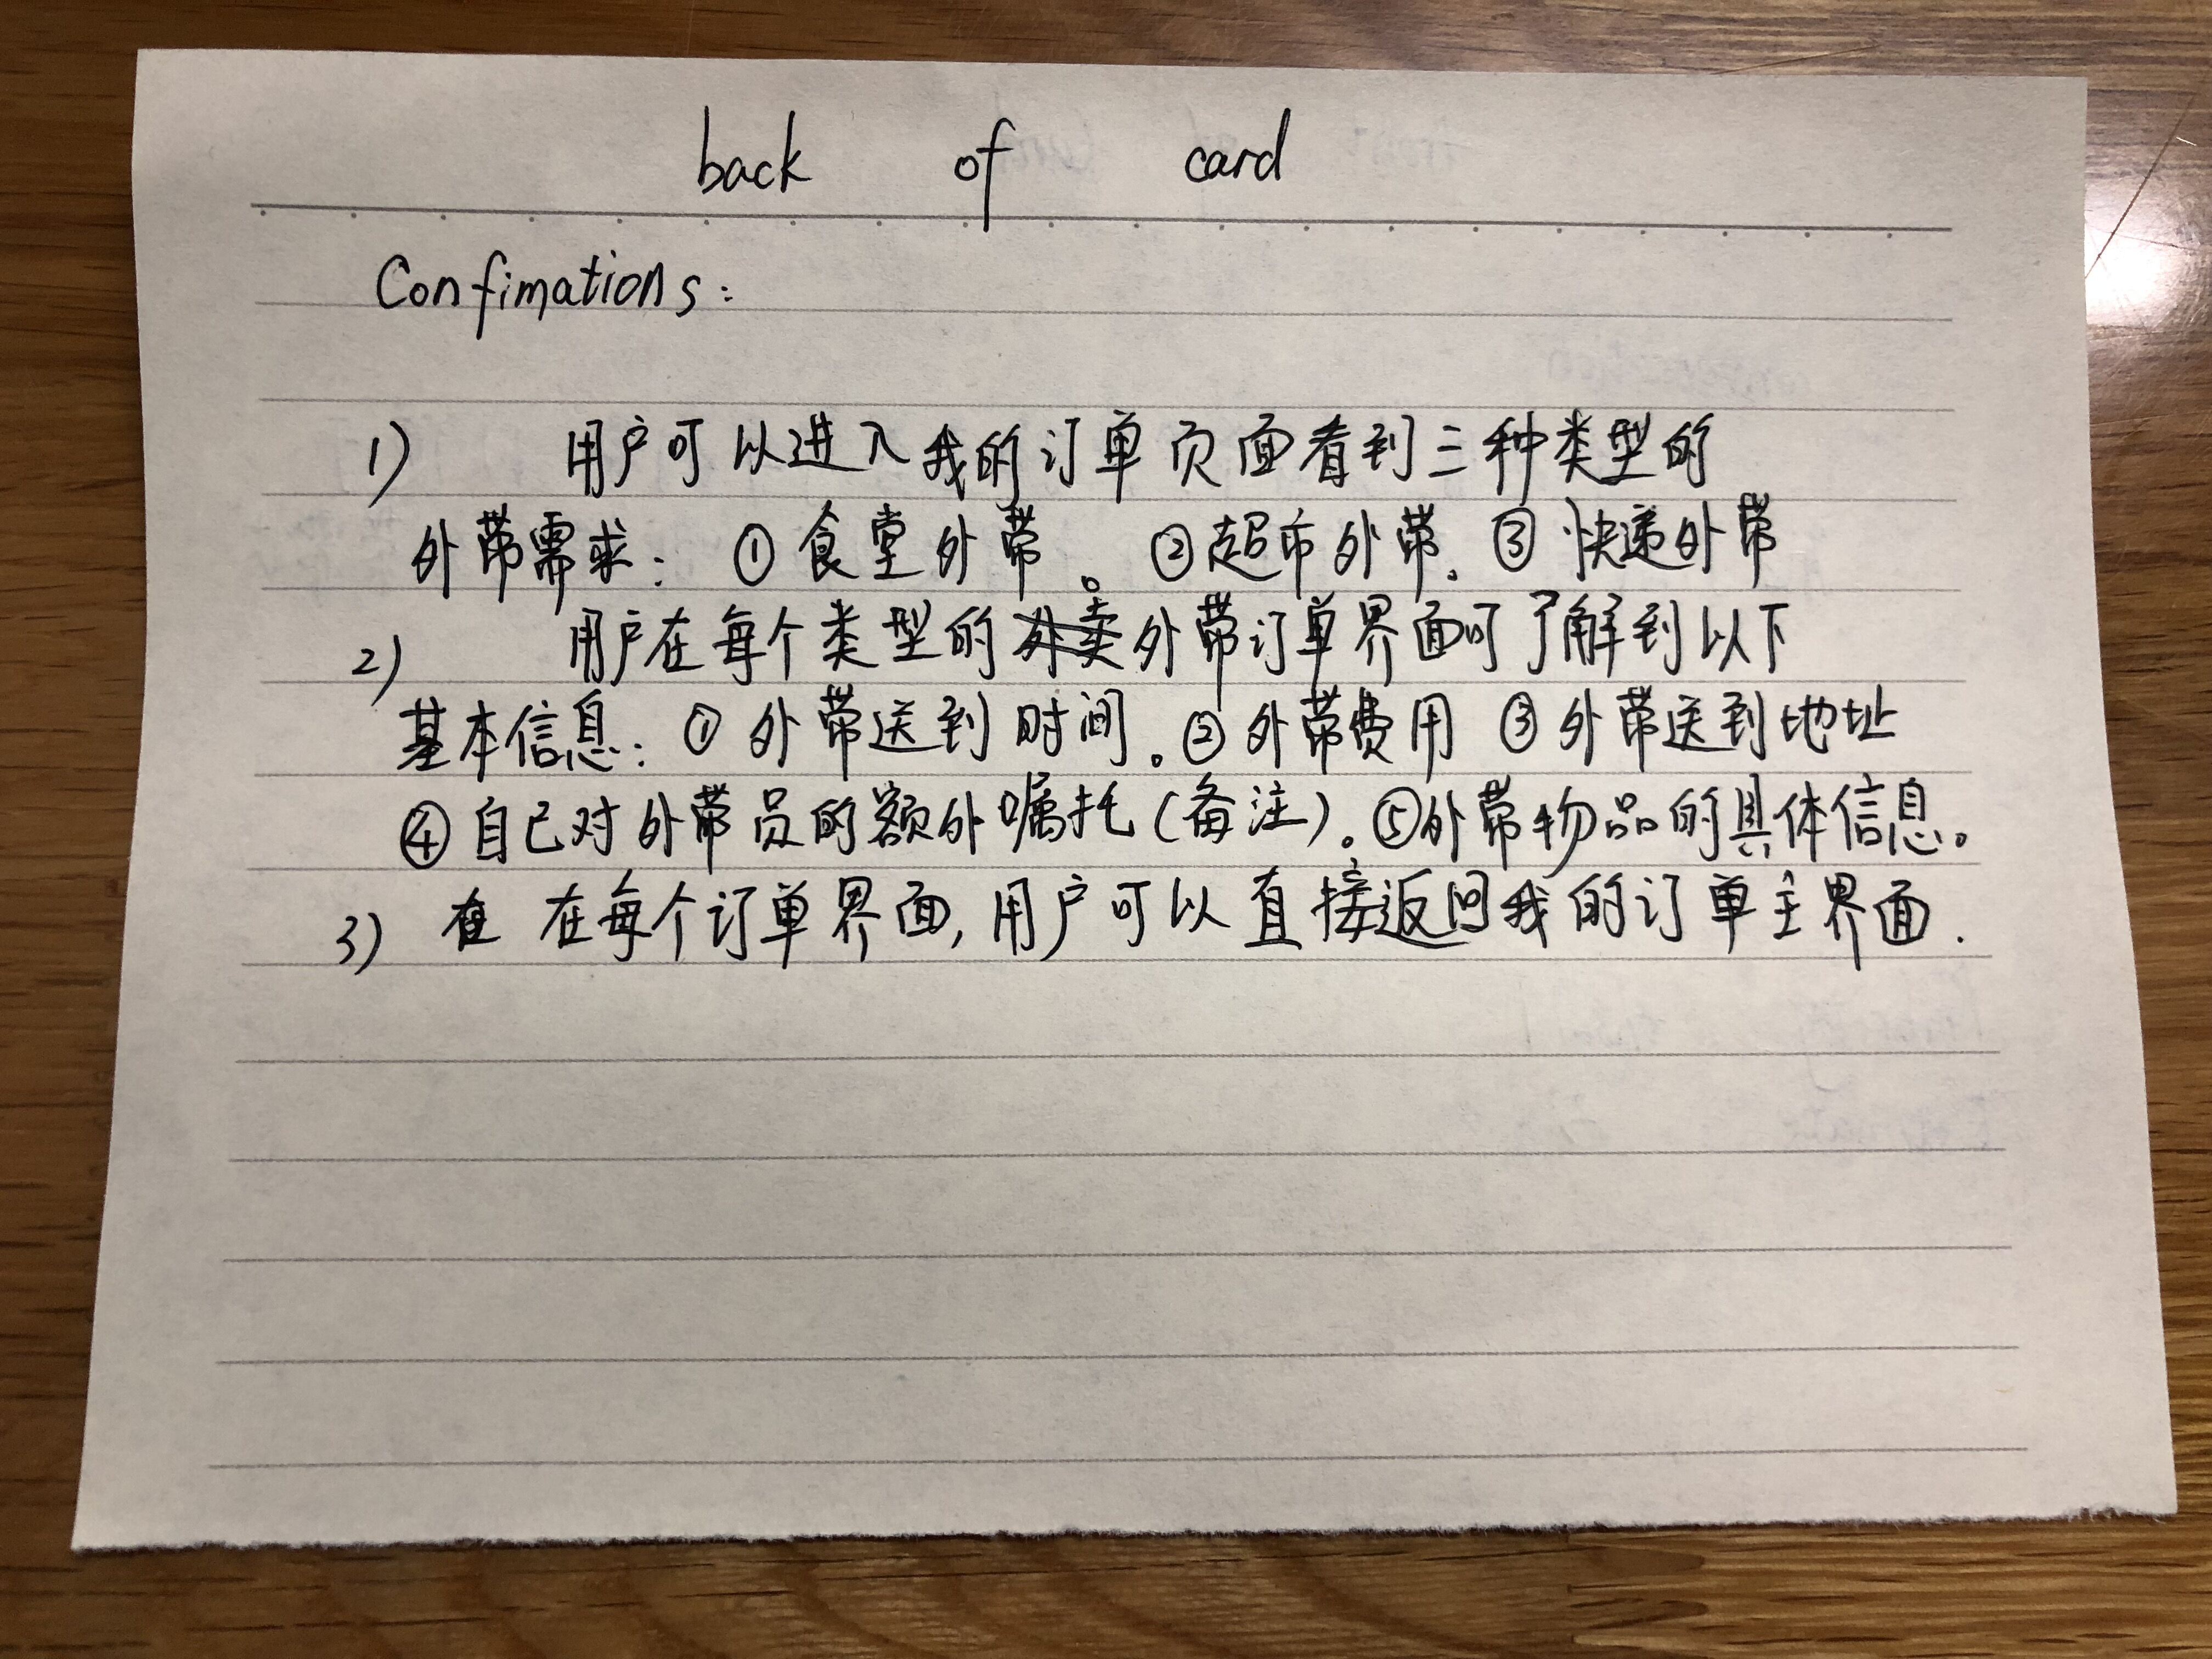 back of card
Confimations:
1) 用户可以进入我的订单页面看到三种类型的
外带需求: ① 食堂外带。 ②超市外带. ③ 快递外带
2) 用户在每个类型的外卖外带订单界面可了解到以下
基本信息: ① 外带送到时间。② 外带费用 ③ 外带送到地址
④ 自己对外带员的额外嘱托(备注)。⑤外带物品的具体信息。
3) 在 在每个订单界面, 用户可以直接返回我的订单主界面.